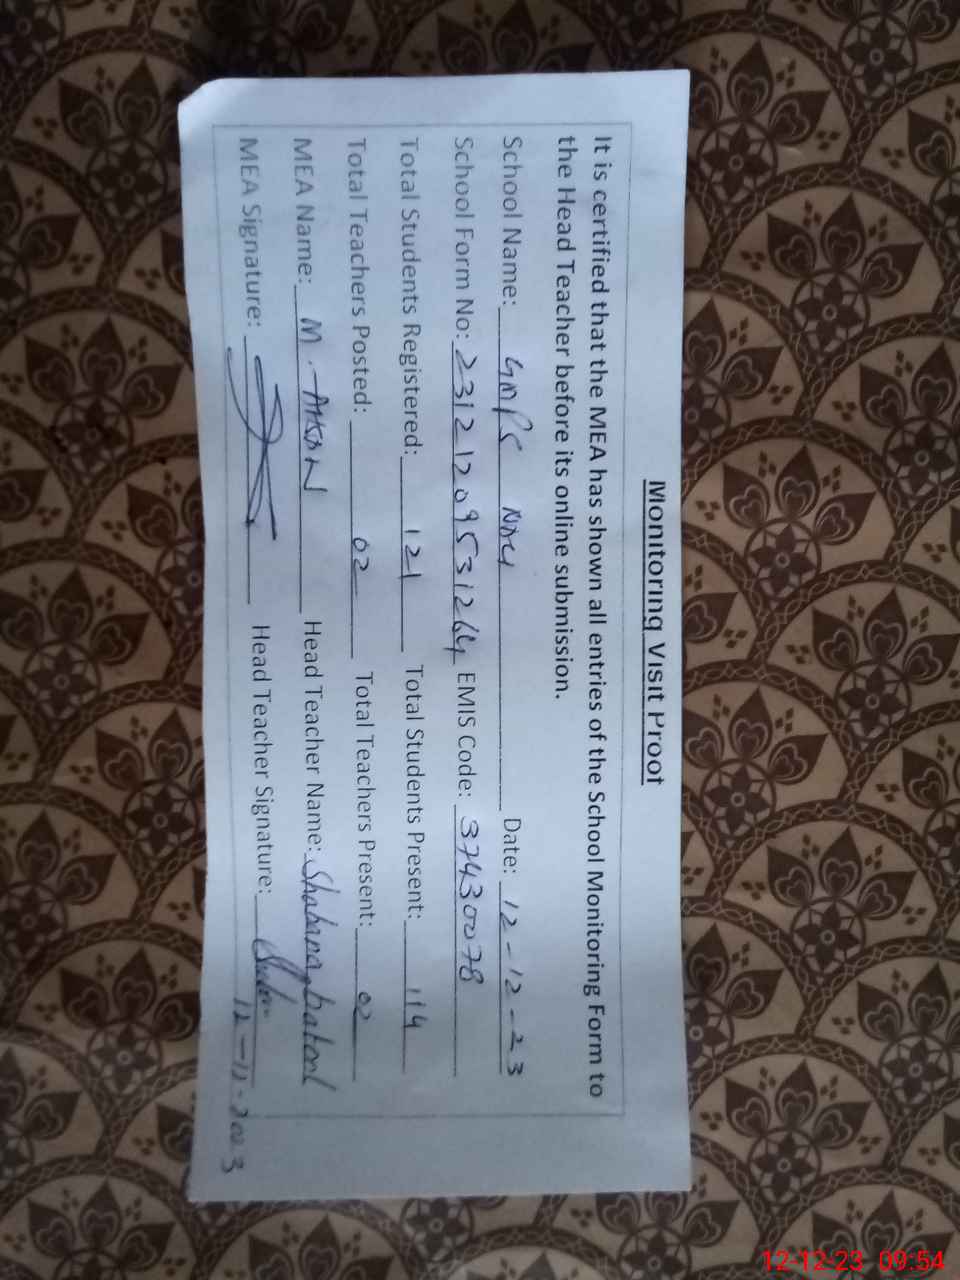 Monitoring Visit Proof
It is certified that the MEA has shown all entries of the School Monitoring Form to
the Head Teacher before its online submission.
School Name: GMPS Date: 12-12-23
School Form No: 23121209531264 EMIS Code: 37430078
Total Students Registered: 121 Total Students Present: 114
Total Teachers Posted: 02 Total Teachers Present: 02
MEA Name: M. Head Teacher Name: Shabana batool
MEA Signature: Head Teacher Signature:
12-12-2023
12-12-23 09:54